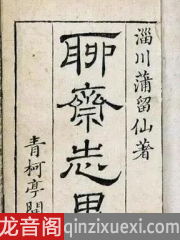 淄川蒲留仙著
聊齋志異
青柯亭開
龙音阁 www.qinzixuexi.com